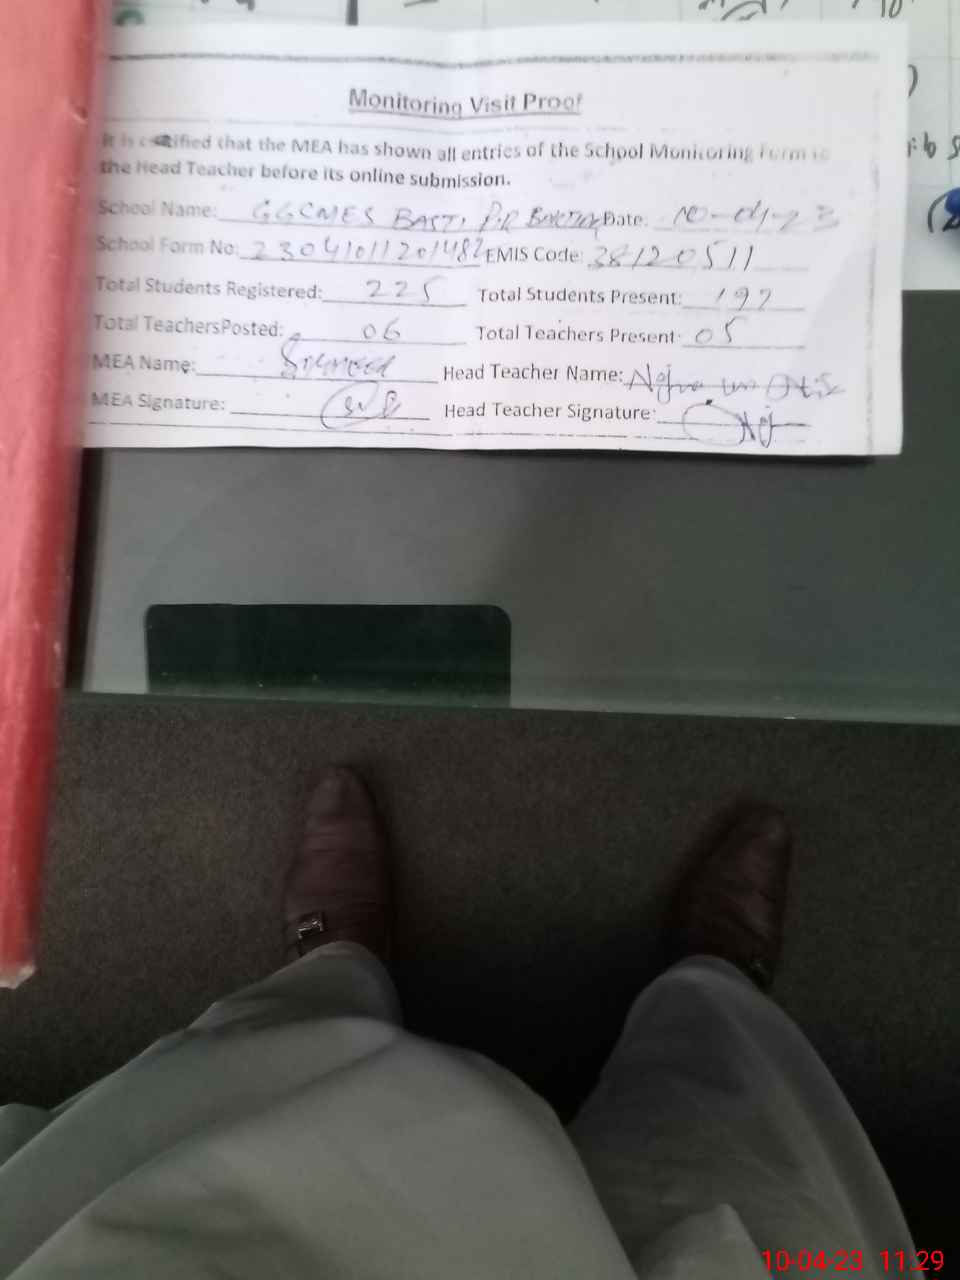 Monitoring Visit Proof
It is certified that the MEA has shown all entries of the School Monitoring Form to
the Head Teacher before its online submission.
School Name: GGCMES BASTI Date: 10-04-23
School Form No: 2304101120148 EMIS Code: 38120511
Total Students Registered: 225 Total Students Present: 192
Total TeachersPosted: 06 Total Teachers Present: 05
MEA Name: Head Teacher Name:
MEA Signature: Head Teacher Signature:
10-04-23 11:29